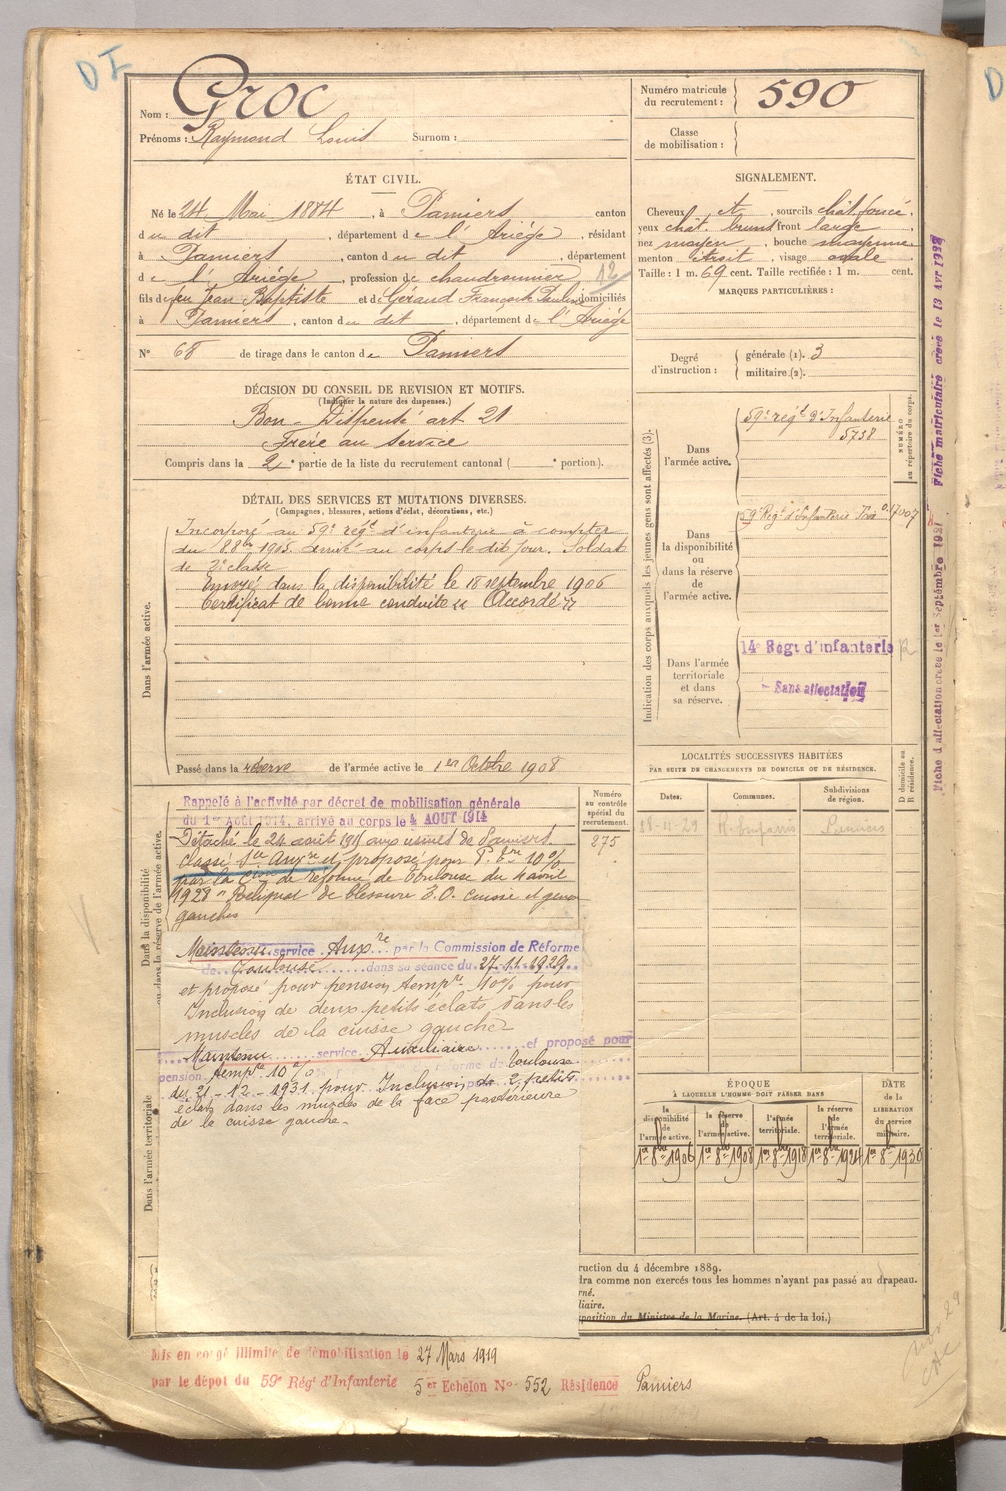 D I
Nom : Groc
Prénoms : Raymond Louis Surnom :
Numéro matricule du recrutement : 590
Classe de mobilisation :
ÉTAT CIVIL.
Né le 24 Mai 1884, à Pamiers canton
du dit, département de l'Ariége, résidant
à Pamiers, canton du dit, département
de l'Ariége, profession de chaudronnier 12
fils de feu Jean Baptiste et de Géraud Françoise Pauline, domiciliés
à Pamiers, canton du dit, département de l'Ariége
N° 68 de tirage dans le canton de Pamiers
SIGNALEMENT.
Cheveux et, sourcils chât foncé,
yeux chât. bruns front large
nez moyen, bouche moyenne
menton étroit, visage ovale
Taille : 1 m. 69 cent. Taille rectifiée : 1 m. cent.
MARQUES PARTICULIÈRES :
Degré d'instruction : générale (1). 3
militaire.(2).
DÉCISION DU CONSEIL DE REVISION ET MOTIFS.
(Indiquer la nature des dispenses.)
Bon - Dispensé art 21
Frère au service
Compris dans la 2e partie de la liste du recrutement cantonal ( e portion).
DÉTAIL DES SERVICES ET MUTATIONS DIVERSES.
(Campagnes, blessures, actions d'éclat, décorations, etc.)
Dans l'armée active.
Incorporé au 59e régt d'infanterie à compter
du 8 8bre 1905. arrivé au corps le dit jour. Soldat
de 2e classe
Envoyé dans la disponibilité le 18 septembre 1906
Certificat de bonne conduite "Accordé"
Passé dans la réserve de l'armée active le 1er Octobre 1908
Indication des corps auxquels les jeunes gens sont affectés (3).
NUMÉRO au répertoire du corps.
Dans l'armée active.
59e régt d'Infanterie
5738
Dans la disponibilité ou dans la réserve de l'armée active.
59e Régt d'Infanterie
Dans l'armée territoriale et dans sa réserve.
14e Régt d'infanterie
Sans affectation
Fiche d'affectation créée le 1er Septembre 1927 Fiche matriculaire créée le 13 Avr 1932
LOCALITÉS SUCCESSIVES HABITÉES
PAR SUITE DE CHANGEMENTS DE DOMICILE OU DE RÉSIDENCE.
Dates. Communes. Subdivisions de région. D domicile ou R résidence.
Pamiers
Dans la disponibilité ou dans la réserve de l'armée active.
Numéro au contrôle spécial du recrutement.
275
Rappelé à l'activité par décret de mobilisation générale
du 1er Août 1914, arrivé au corps le 4 AOUT 1914
Détaché le 24 août 1915 aux usines de Pamiers.
Classé Sce Auxre et proposé pour P. Tre 10%
par la Cion de réforme de Toulouse du 4 avril
1928 "Reliquat de blessure E.O. cuisse et genou
gauches
Maintenu service Auxre par la Commission de Réforme
de Toulouse dans sa séance du 27.11.1929
et proposé pour pension tempre 10% pour
Inclusion de deux petits éclats dans les
muscles de la cuisse gauche
Maintenu service Auxiliaire et proposé pour
pension tempre 10% réforme de Toulouse
du 21-12-1931 pour Inclusion de 2 petits
éclats dans les muscles de la face postérieure
de la cuisse gauche.
Dans l'armée territoriale
ÉPOQUE
À LAQUELLE L'HOMME DOIT PASSER DANS
la disponibilité de l'armée active. la réserve de l'armée active. l'armée territoriale. la réserve de l'armée territoriale. DATE de la LIBÉRATION du service militaire.
1er 8bre 1906 1er 8bre 1908 1er 8bre 1918 1er 8bre 1924 1er 8bre 1930
ruction du 4 décembre 1889.
dra comme non exercés tous les hommes n'ayant pas passé au drapeau.
rné.
liaire.
sposition du Ministre de la Marine. (Art. 4 de la loi.)
Mis en congé illimité de démobilisation le 27 Mars 1919
par le dépôt du 59e Régt d'Infanterie 5er Echelon No 552 Résidence Pamiers